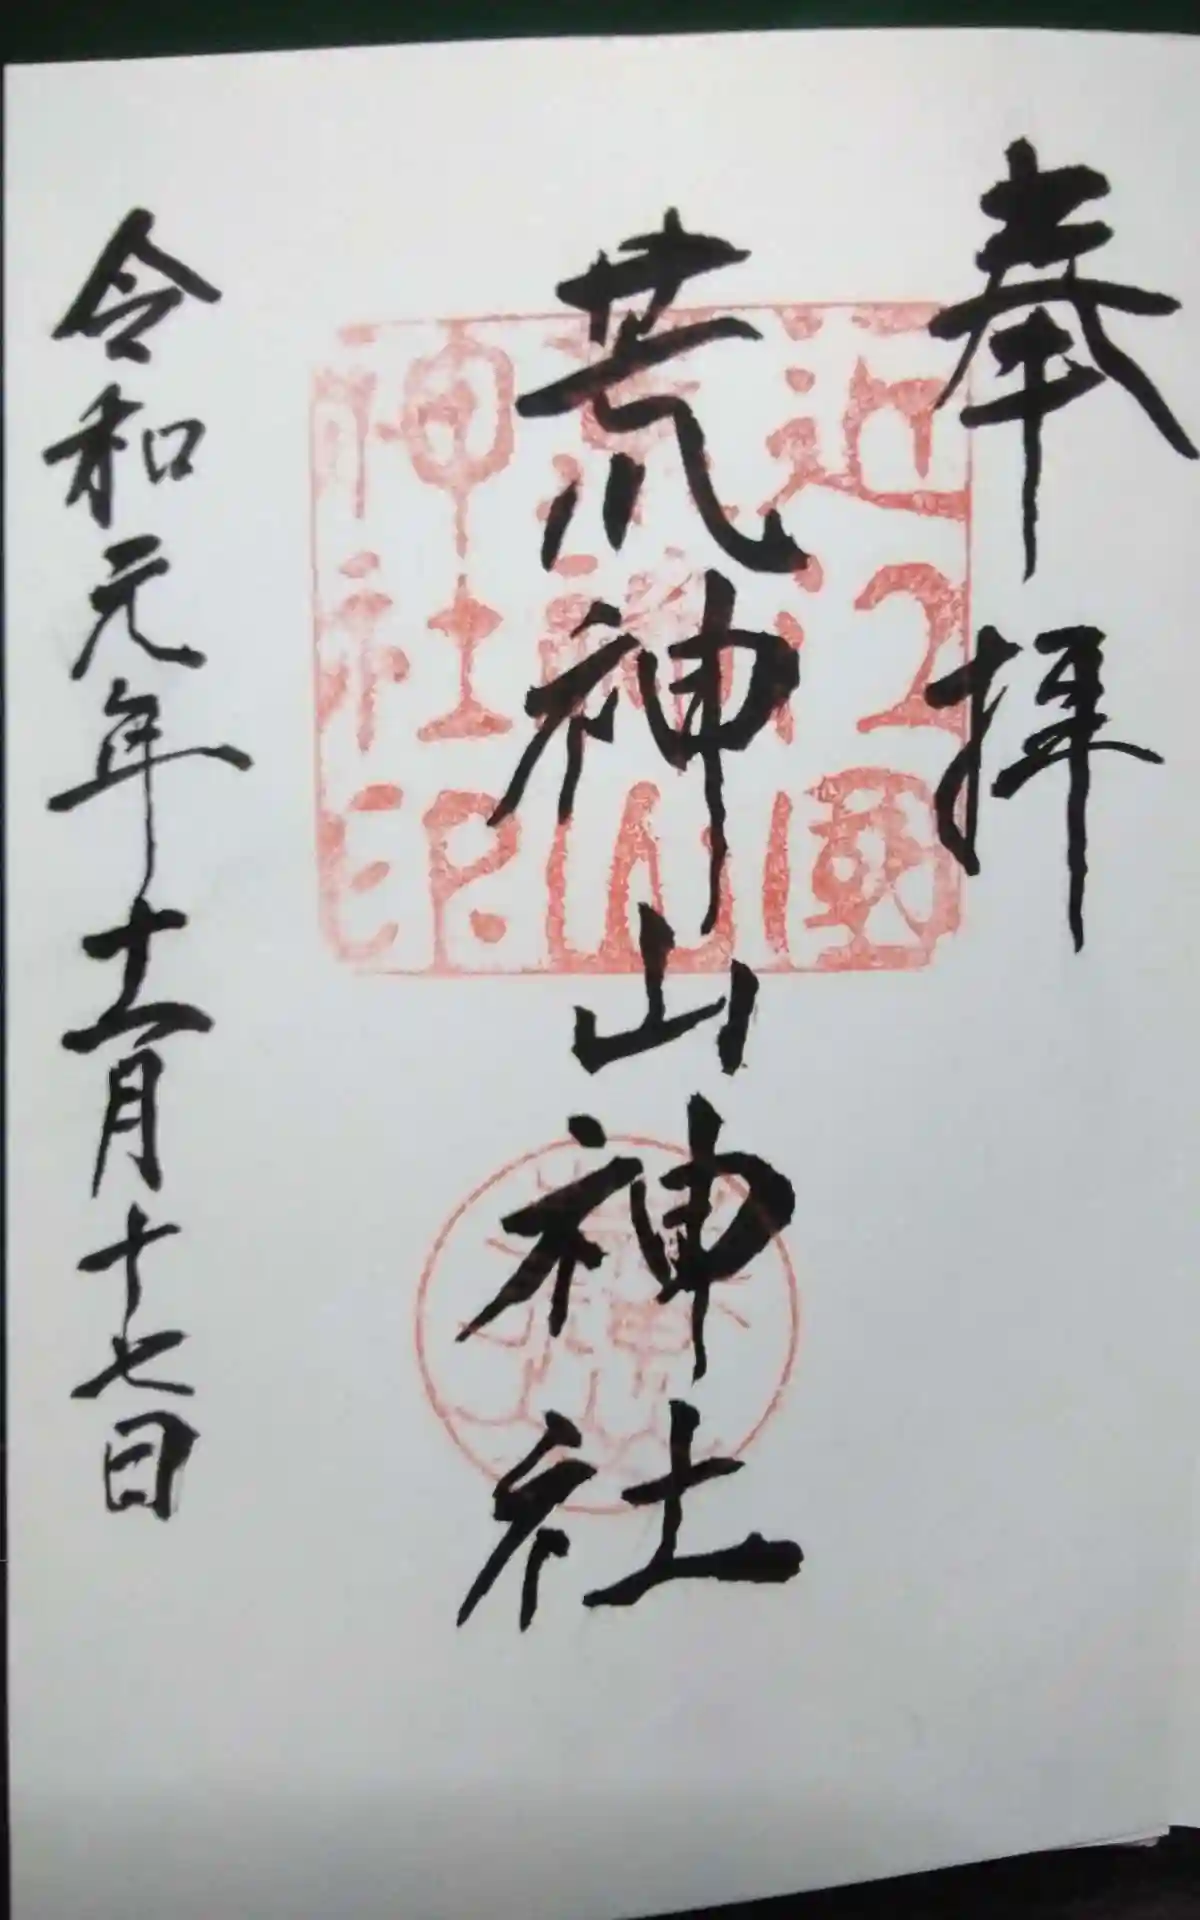 奉拝
荒神山神社
令和元年十一月十七日
近江國
荒神山
神社印